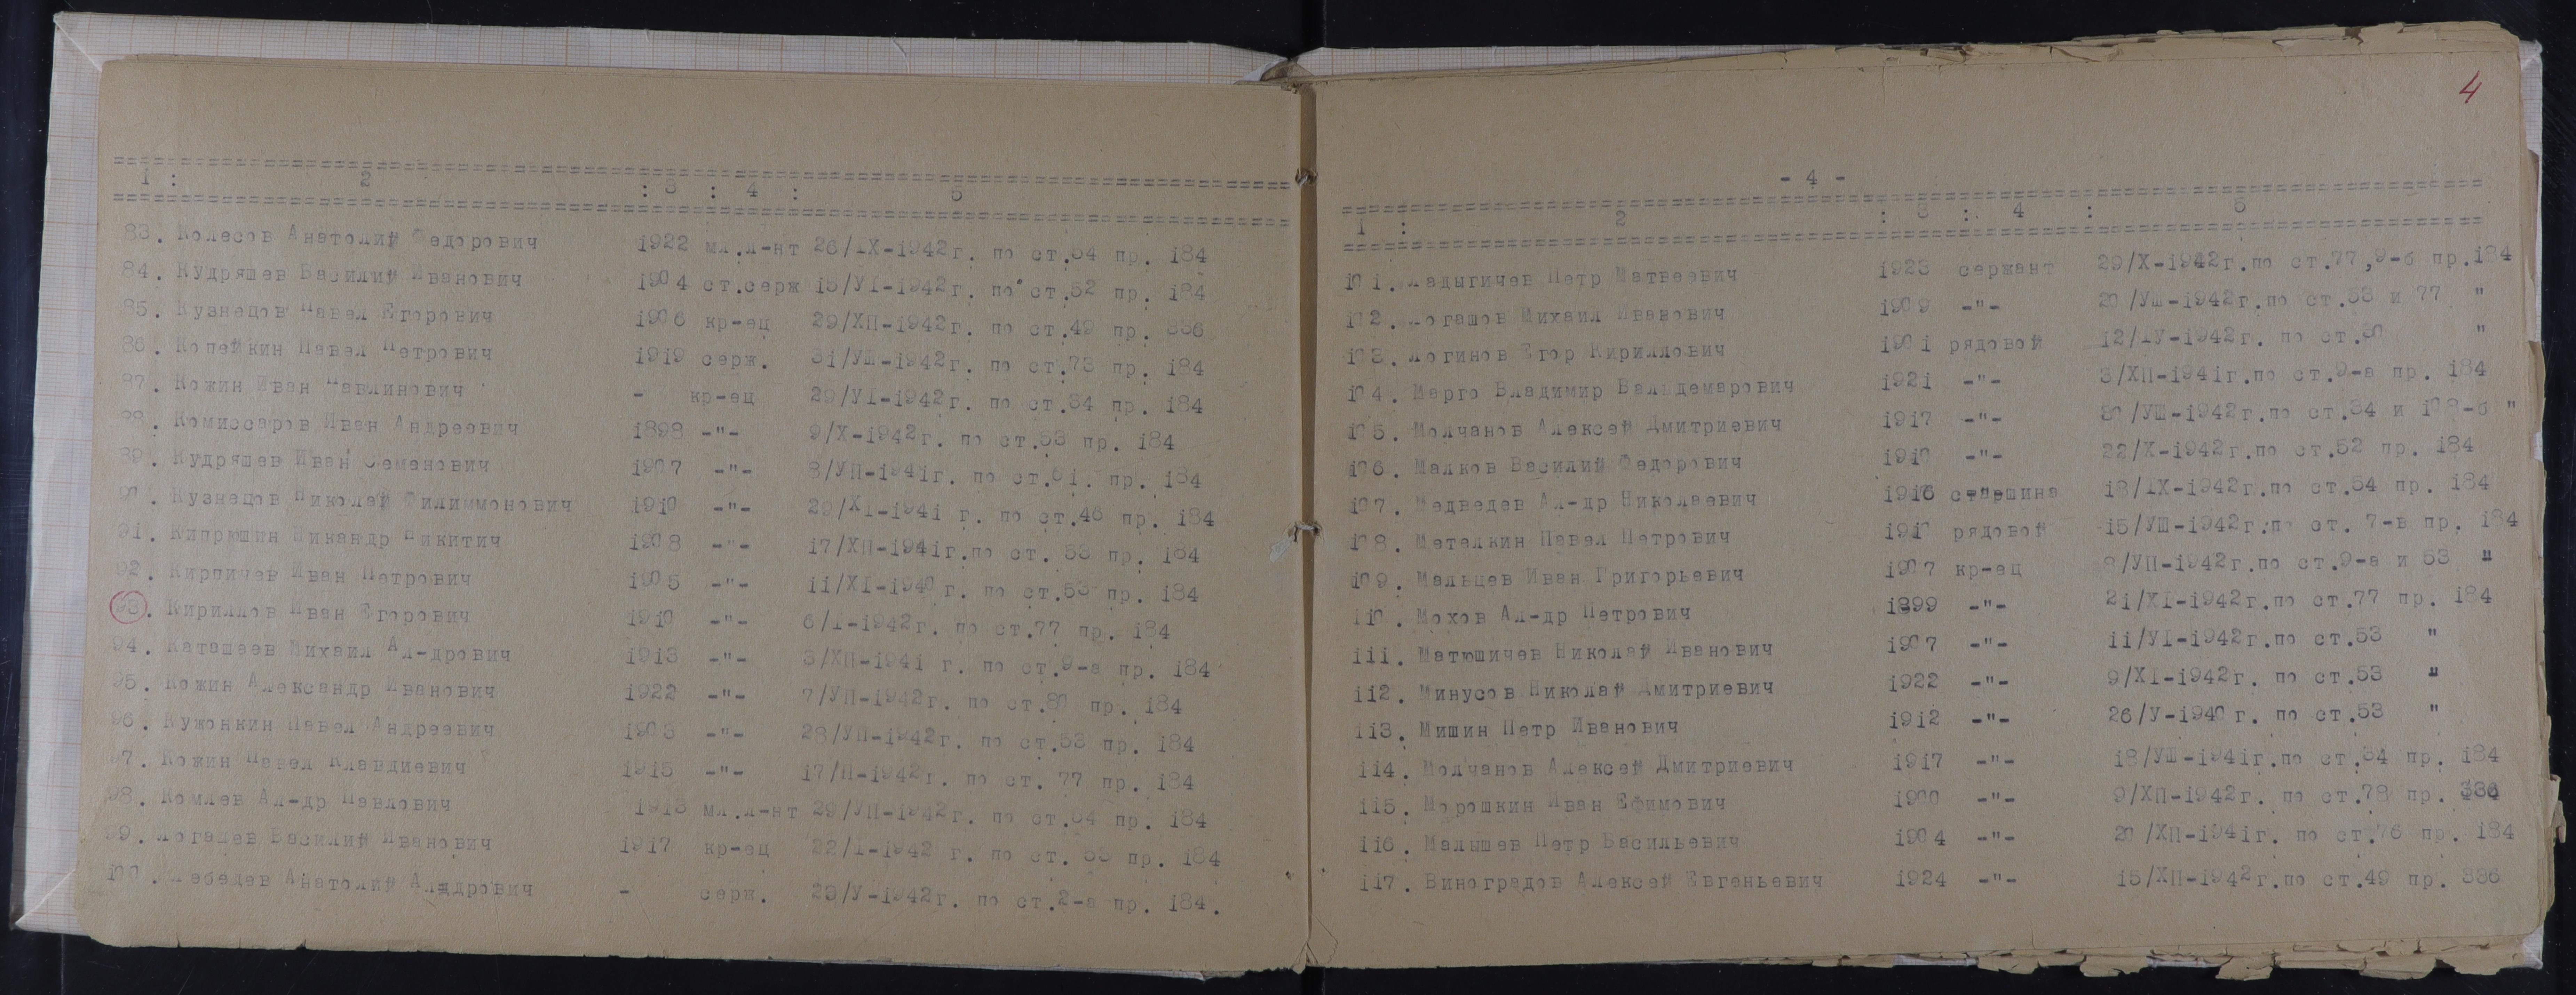 1 : 2 : 3 : 4 : 5
83. Колесов Анатолий Федорович 1922 мл.л-нт 26/IX-1942г. по ст.54 пр. 184
84. Кудряшев Василий Иванович 1904 ст.серж 15/УI-1942г. по ст.52 пр. 184
85. Кузнецов Павел Егорович 1906 кр-ец 29/ХП-1942г. по ст.49 пр. 336
86. Копейкин Павел Петрович 1919 серж. 31/УШ-1942г. по ст.73 пр. 184
87. Кожин Иван Павлинович - кр-ец 29/УI-1942г. по ст.34 пр. 184
88. Комиссаров Иван Андреевич 1898 -"- 9/Х-1942г. по ст.53 пр. 184
89. Кудряшев Иван Семенович 1907 -"- 8/УП-1941г. по ст.61. пр. 184
90. Кузнецов Николай Филиммонович 1910 -"- 29/ХI-1941 г. по ст.46 пр. 184
91. Кипрюшин Никандр Никитич 1908 -"- 17/ХП-1941г.по ст. 33 пр. 184
92. Кирпичев Иван Петрович 1905 -"- 11/ХI-1940 г. по ст.53 пр. 184
93. Кириллов Иван Егорович 1910 -"- 6/I-1942г. по ст.77 пр. 184
94. Каташеев Михаил Ал-дрович 1913 -"- 3/ХП-1941 г. по ст.9-а пр. 184
95. Кожин Александр Иванович 1922 -"- 7/УП-1942г. по ст.80 пр. 184
96. Кужонкин Павел Андреевич 1903 -"- 28/УП-1942г. по ст.53 пр. 184
97. Кожин Павел Клавдиевич 1915 -"- 17/П-1942г. по ст. 77 пр. 184
98. Комлев Ал-др Павлович 1913 мл.л-нт 29/УП-1942г. по ст.64 пр. 184
99. Логачев Василий Иванович 1917 кр-ец 22/I-1942 г. по ст. 53 пр. 184
100. Лебедев Анатолий Ал-дрович - серж. 29/У-1942г. по ст.2-а пр. 184.
4
- 4 -
1 : 2 : 3 : 4 : 5
101. Ладыгичев Петр Матвеевич 1923 сержант 29/Х-1942г.по ст.77,9-б пр.184
102. Логашов Михаил Иванович 1909 -"- 20/УШ-1942г.по ст.53 и 77 "
103. Логинов Егор Кириллович 1901 рядовой 12/IУ-1942г. по ст.30 "
104. Марго Владимир Вальдемарович 1921 -"- 3/ХП-1941г.по ст.9-а пр. 184
105. Молчанов Алексей Дмитриевич 1917 -"- 30/УШ-1942г.по ст.34 и 103-б "
106. Малков Василий Федорович 1910 -"- 22/Х-1942г.по ст.52 пр. 184
107. Медведев Ал-др Николаевич 1916 старшина 18/IХ-1942г.по ст.54 пр. 184
108. Метелкин Павел Петрович 1910 рядовой 15/УШ-1942г.по ст. 7-в пр. 184
109. Мальцев Иван Григорьевич 1907 кр-ец 8/УП-1942г.по ст.9-а и 53 "
110. Мохов Ал-др Петрович 1899 -"- 21/ХI-1942г.по ст.77 пр. 184
111. Матюшичев Николай Иванович 1907 -"- 11/УI-1942г.по ст.53 "
112. Минусов Николай Дмитриевич 1922 -"- 9/ХI-1942г. по ст.53 "
113. Мишин Петр Иванович 1912 -"- 26/У-1940 г. по ст.53 "
114. Молчанов Алексей Дмитриевич 1917 -"- 18/УШ-1941г.по ст.34 пр. 184
115. Морошкин Иван Ефимович 1900 -"- 9/ХП-1942г. по ст.78 пр. 336
116. Малышев Петр Васильевич 1904 -"- 20/ХП-1941г. по ст.76 пр. 184
117. Виноградов Алексей Евгеньевич 1924 -"- 15/ХП-1942г.по ст.49 пр. 336